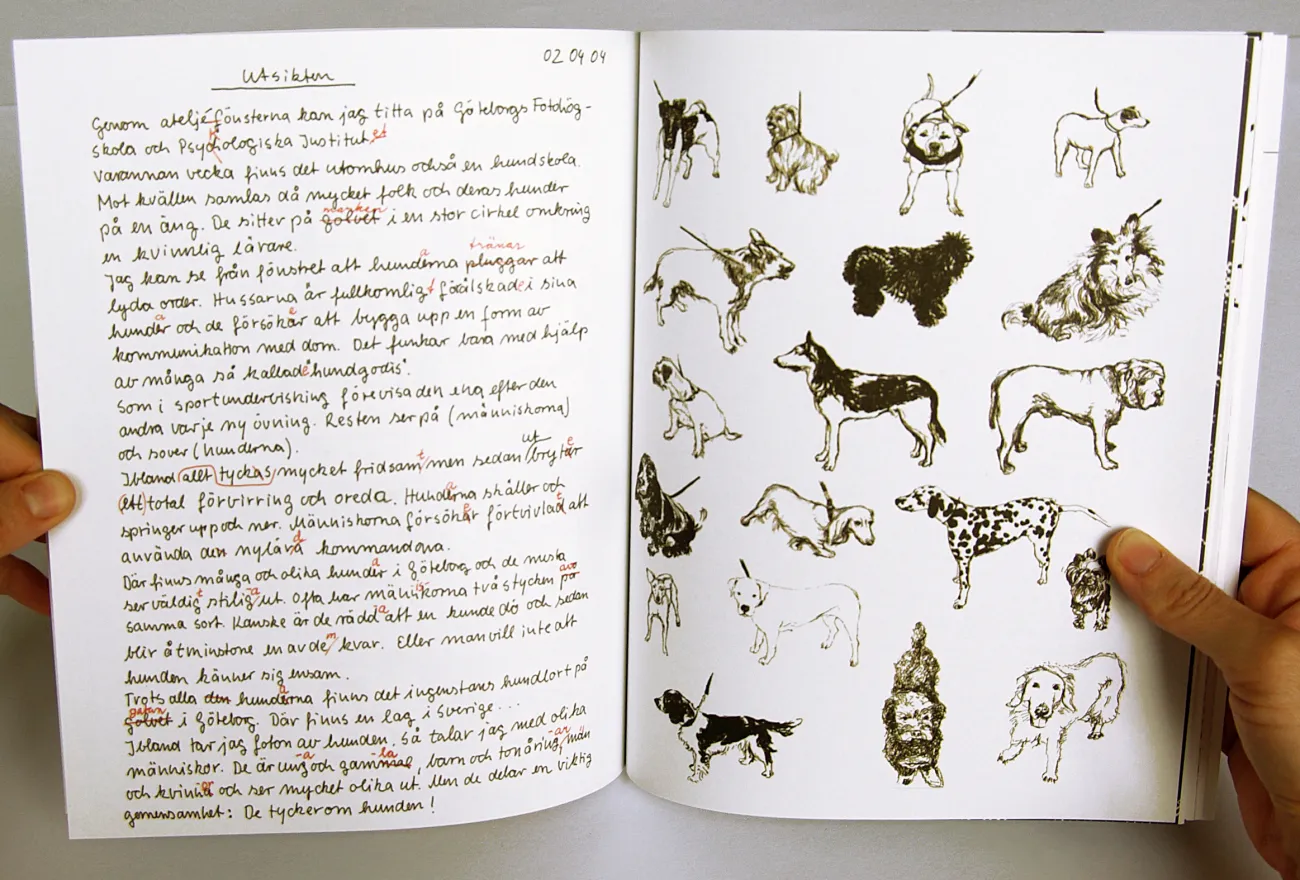 02 04 04
Utsikten
Genom ateljéfönsterna kan jag titta på Göteborgs Fotohög-
skola och Psychologiska Institut et
varannan vecka finns det utomhus också en hundskola.
Mot kvällen samlas då mycket folk och deras hunder
marken
på en äng. De sitter på golvet i en stor cirkel omkring
en kvinnlig lärare.
tränar
Jag kan se från fönstret att hunderna pluggar att
lyda order. Hussarna är fullkomligt förälskade i sina
hunder och de försökar att bygga upp en form av
kommunikation med dom. Det funkar bara med hjälp
av många så kallade "hundgodis".
Som i sportundervisning förevisa den ena efter den
andra varje ny övning. Resten ser på (människorna)
och sover (hunderna).
ut
Ibland allt tyckas mycket fridsamt, men sedan brytar
ett total förvirring och oreda. Hunderna skäller och
springer upp och ner. Människorna försökar förtvivlad att
använda den nylära kommandona.
Där finns många och olika hunder i Göteborg och de mesta
av
ser väldigt stilig ut. Ofta har människorna två stycken på
samma sort. Kanske är de rädd att en hunde dö och sedan
blir åtminstone en av dem kvar. Eller man vill inte att
hunden känner sig ensam.
Trots alla den hunderna finns det ingenstans hundlort på
gatan
golvet i Göteborg. Där finns en lag i Sverige...
Ibland tar jag foton av hunden. Så talar jag med olika
människor. De är ung och gammal, barn och tonåring, män
och kvinna och ser mycket olika ut. Men de delar en viktig
gemensamhet: De tycker om hunden!